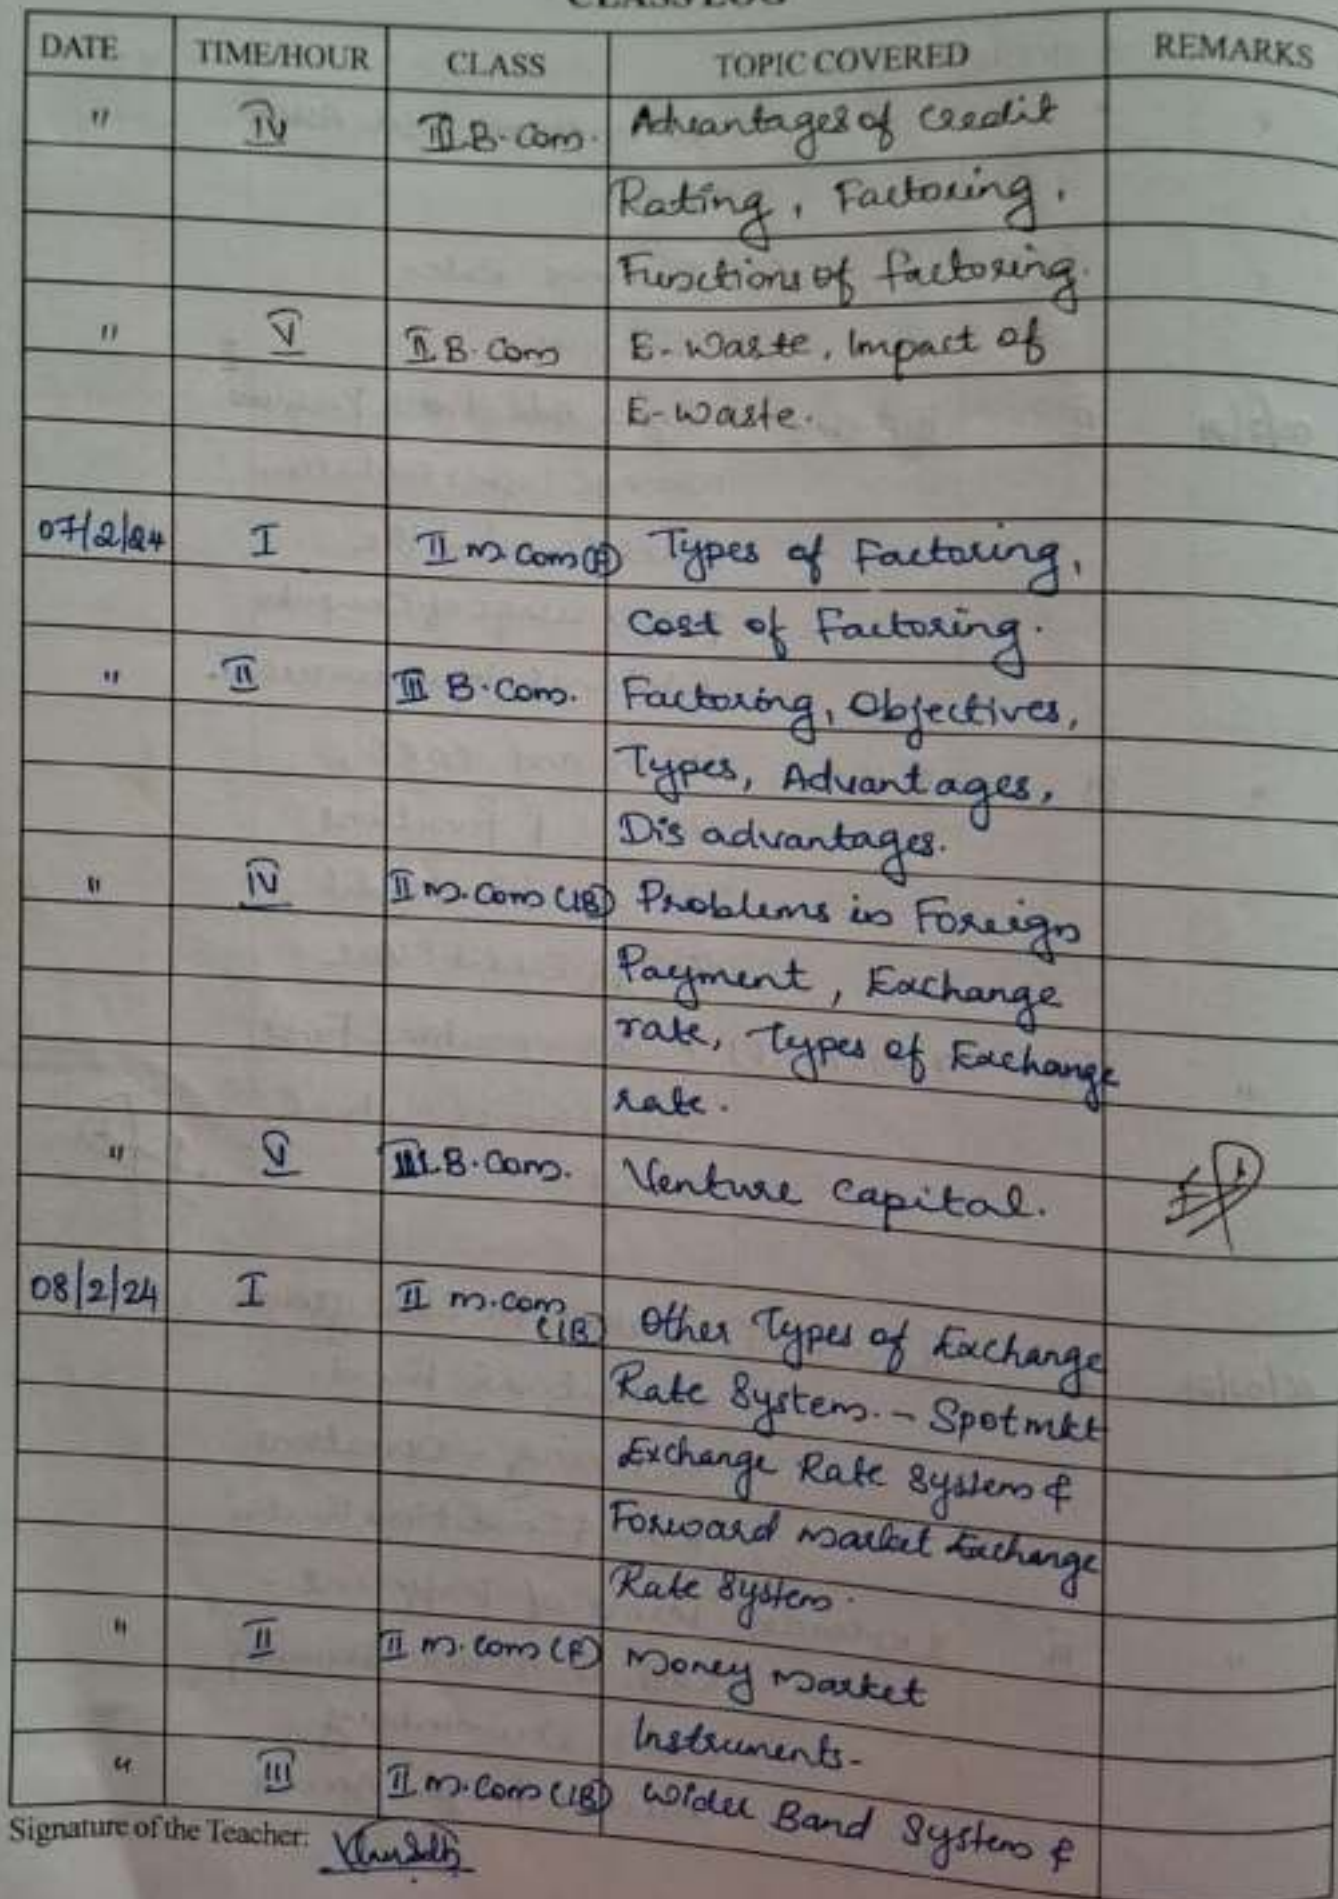 CLASS LOG
DATE TIME/HOUR CLASS TOPIC COVERED REMARKS
" IV III B.Com. Advantages of Credit
Rating, Factoring,
Functions of factoring.
" V II B.Com E-Waste, Impact of
E-Waste.
07/2/24 I II M.Com(F) Types of Factoring,
Cost of Factoring.
" II III B.Com. Factoring, Objectives,
Types, Advantages,
Dis advantages.
" IV II M.Com (IB) Problems in Foreign
Payment, Exchange
rate, Types of Exchange
rate.
" V III B.Com. Venture Capital.
08/2/24 I II M.Com
(IB) Other Types of Exchange
Rate System. - Spot mkt
Exchange Rate System &
Forward Market Exchange
Rate System.
" II II M.Com (F) Money Market
Instruments-
" III II M.Com (IB) Wider Band System &
Signature of the Teacher: